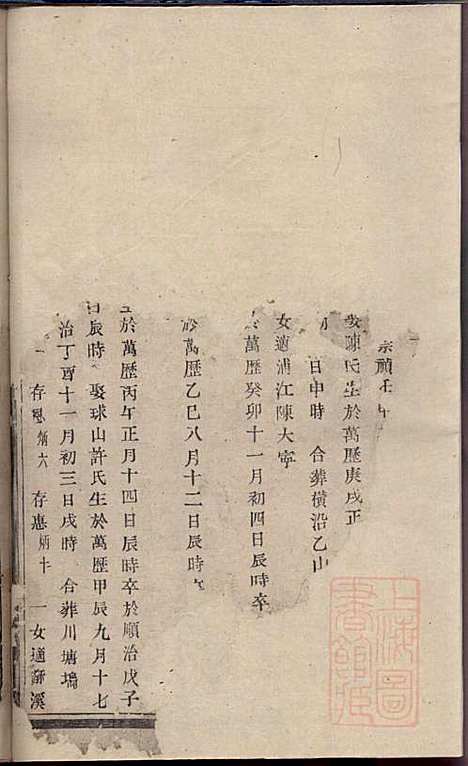 崇禎壬午
陳氏生於萬歷庚戌正
日申時 合葬橫沿乙山
女適浦江陳大寜
萬歷癸卯十一月初四日辰時卒
萬歷乙巳八月十二日辰時
於萬歷丙午正月十四日辰時卒於順治戊子
日辰時 娶球山許氏生於萬歷甲辰九月十七
治丁酉十一月初三日戌時 合葬川塘塢
存 炳六 存惠炳十 一女適 溪
上海圖書館藏